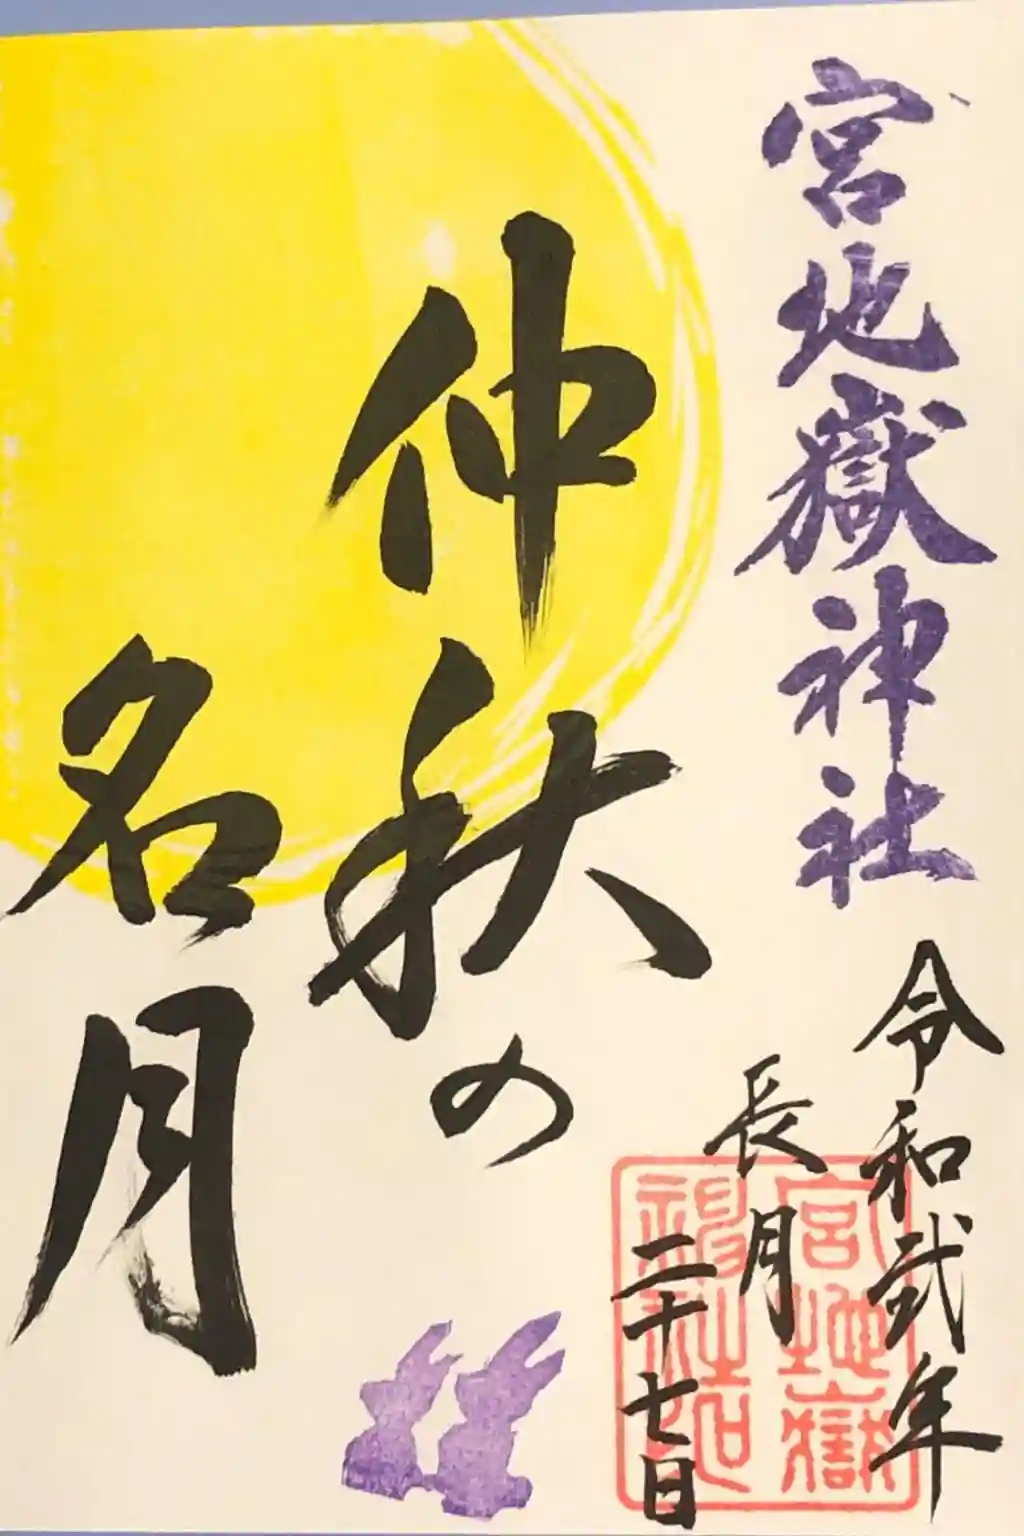 宮地嶽神社
令和弐年
長月
二十七日
仲秋の
名月
宮地嶽
神社